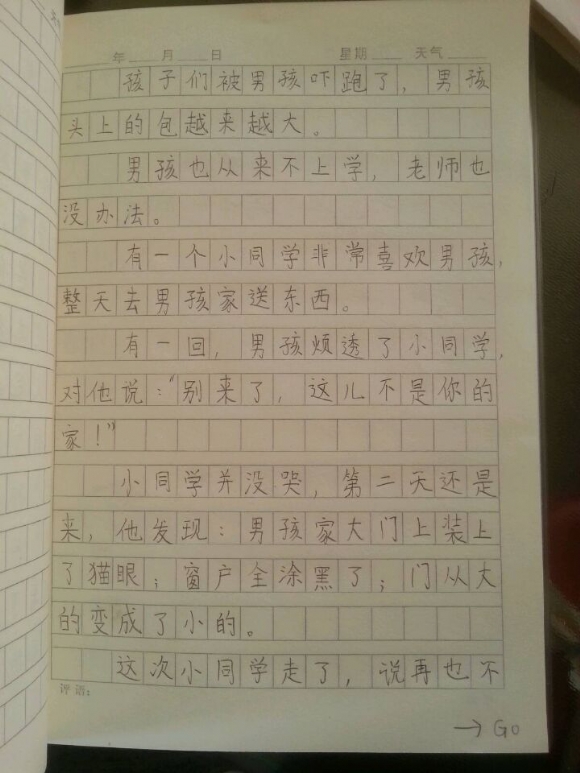 年 月 日 星期 天气
孩子们被男孩吓跑了，男孩
头上的包越来越大。
男孩也从来不上学，老师也
没办法。
有一个小同学非常喜欢男孩，
整天去男孩家送东西。
有一回，男孩烦透了小同学，
对他说：“别来了，这儿不是你的
家！”
小同学并没哭，第二天还是
来，他发现：男孩家大门上装上
了猫眼；窗户全涂黑了；门从大
的变成了小的。
这次小同学走了，说再也不
评语：
→ Go